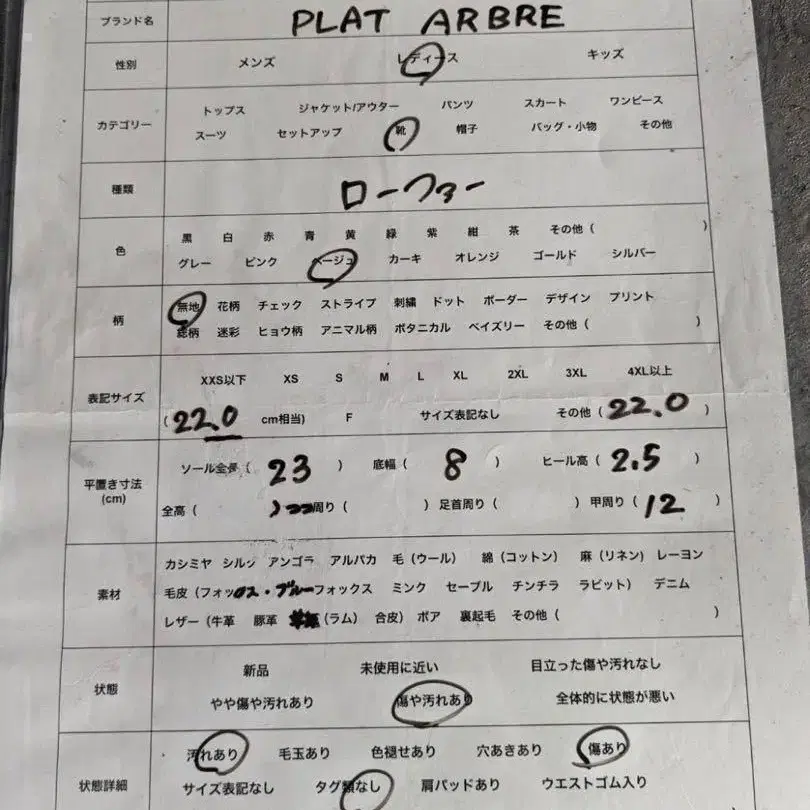 ブランド名 PLAT ARBRE
性別 メンズ レディース キッズ
カテゴリー
トップス ジャケット/アウター パンツ スカート ワンピース
スーツ セットアップ 靴 帽子 バッグ・小物 その他
種類 ローファー
色
黒 白 赤 青 黄 緑 紫 紺 茶 その他 ( )
グレー ピンク ベージュ カーキ オレンジ ゴールド シルバー
柄
無地 花柄 チェック ストライプ 刺繍 ドット ボーダー デザイン プリント
総柄 迷彩 ヒョウ柄 アニマル柄 ボタニカル ペイズリー その他 ( )
表記サイズ
XXS以下 XS S M L XL 2XL 3XL 4XL以上
( 22.0 cm相当) F サイズ表記なし その他 ( 22.0 )
平置き寸法
(cm)
ソール全長 ( 23 ) 底幅 ( 8 ) ヒール高 ( 2.5 )
全高 ( ) 周り ( ) 足首周り ( ) 甲周り ( 12 )
素材
カシミヤ シルク アンゴラ アルパカ 毛 (ウール) 綿 (コットン) 麻 (リネン) レーヨン
毛皮 (フォックス・ブルーフォックス ミンク セーブル チンチラ ラビット) デニム
レザー (牛革 豚革 (ラム) 合皮) ボア 裏起毛 その他 ( )
状態
新品 未使用に近い 目立った傷や汚れなし
やや傷や汚れあり 傷や汚れあり 全体的に状態が悪い
状態詳細
汚れあり 毛玉あり 色褪せあり 穴あきあり 傷あり
サイズ表記なし タグ類なし 肩パッドあり ウエストゴム入り